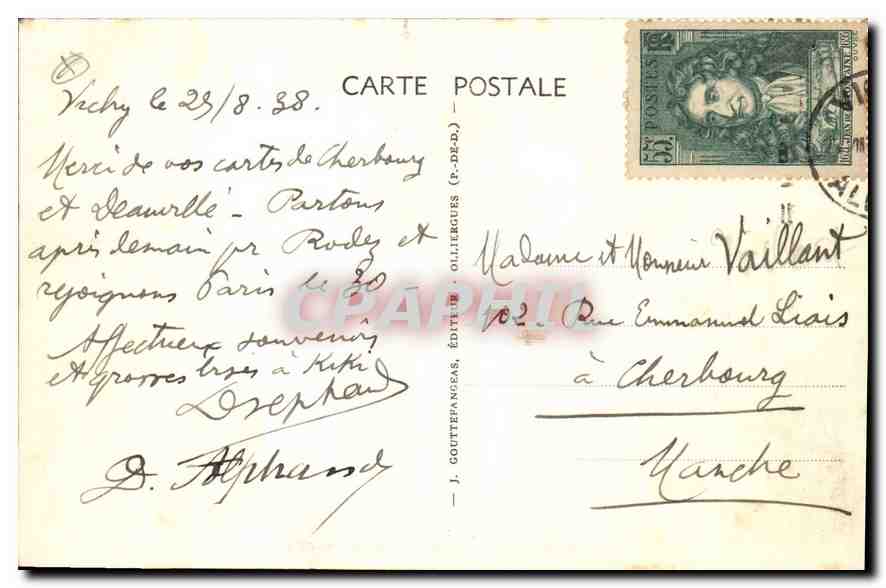 CARTE POSTALE
Vichy le 29/8.38.
Merci de vos cartes de Cherbourg
et Deauville – Partons
après demain pr Rodez et
rejoignons Paris le 30 –
Affectueux souvenirs
et grosses bises à Kiki
D. Alphand
J. GOUTTEFANGEAS, ÉDITEUR - OLLIERGUES (P.-DE-D.)
POSTES
55c
Madame et Monsieur Vaillant
102 – Rue Emmanuel Liais
à Cherbourg
Manche
CPAPHIL